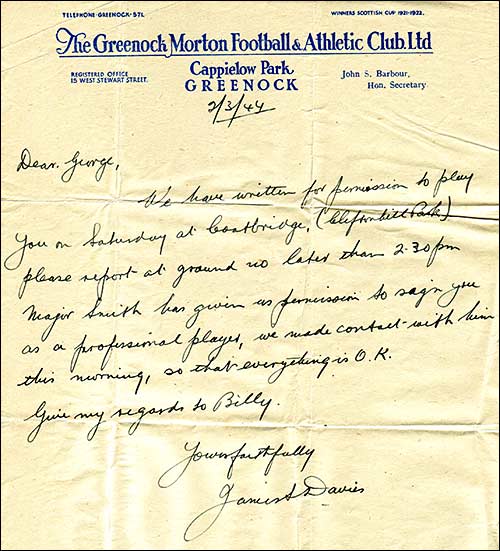 TELEPHONE-GREENOCK-571.
WINNERS SCOTTISH CUP 1921-1922.
The Greenock Morton Football & Athletic Club. Ltd
REGISTERED OFFICE
15 WEST STEWART STREET.
Cappielow Park
GREENOCK
John S. Barbour,
Hon. Secretary
2/3/44
Dear George,
We have written for permission to play
you on Saturday at Coatbridge, (Cliftonhill Park)
please report at ground no later than 2.30pm
Major Smith has given us permission to sign you
as a professional player, we made contact with him
this morning, so that everything is O.K.
Give my regards to Billy.
Yours faithfully
James S Davies